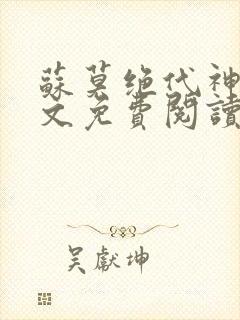 蘇莫绝代神
文免費閱讀
吴獻坤